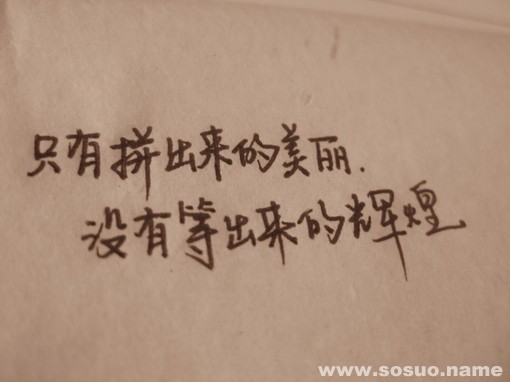 只有拼出来的美丽.
没有等出来的辉煌
www.sosuo.name